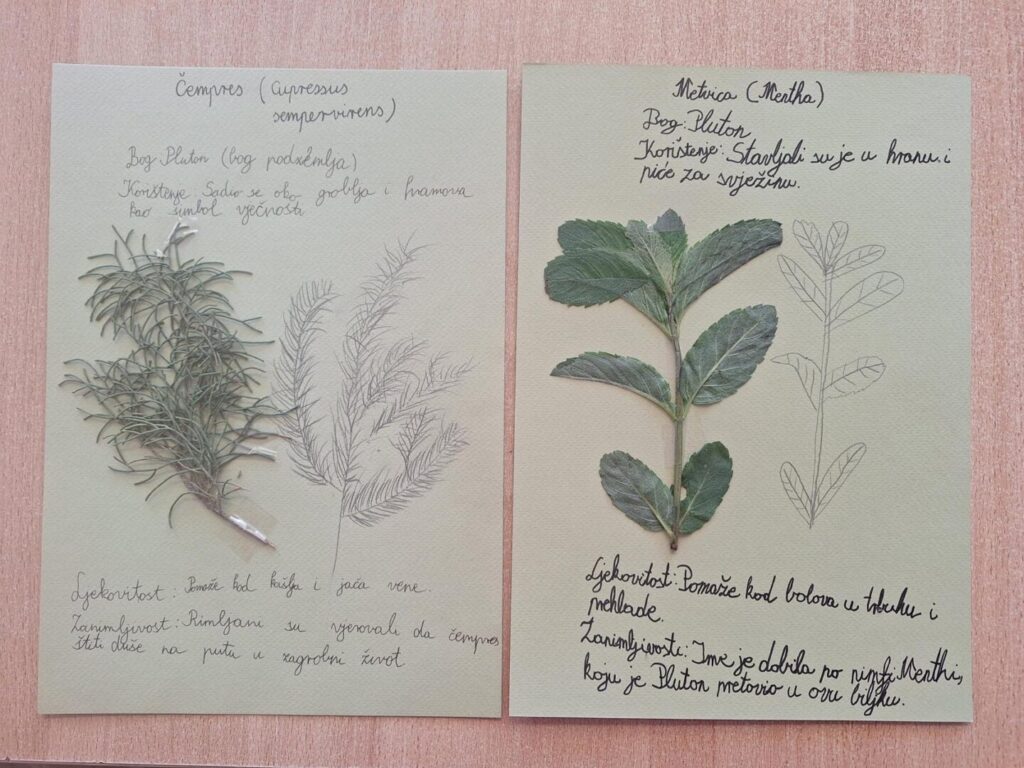 Čempres (Cupressus
sempervirens)
Bog: Pluton (bog podzemlja)
Korištenje: Sadio se oko groblja i hramova
kao simbol vječnosti
Ljekovitost: Pomaže kod kašlja i jača vene.
Zanimljivost: Rimljani su vjerovali da čempres
štiti duše na putu u zagrobni život
Metvica (Mentha)
Bog: Pluton
Korištenje: Stavljali su je u hranu i
piće za svježinu.
Ljekovitost: Pomaže kod bolova u trbuhu i
prehlade.
Zanimljivosti: Ime je dobila po nimfi Menthi,
koju je Pluton pretovio u ovu biljku.